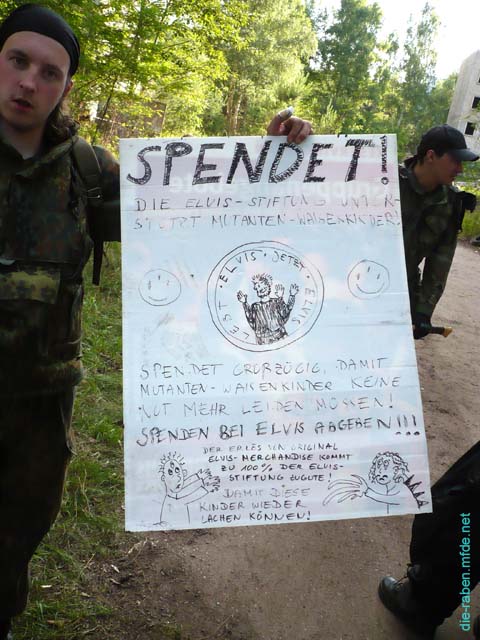 SPENDET!
DIE ELVIS-STIFTUNG UNTER-
STÜTZT MUTANTEN-WAISENKINDER!
LEST · ELVIS · JETZT · ELVIS
SPENDET GROßZÜGIG, DAMIT
MUTANTEN-WAISENKINDER KEINE
NOT MEHR LEIDEN MÜSSEN!
SPENDEN BEI ELVIS ABGEBEN!!!
DER ERLÖS VON ORIGINAL
ELVIS-MERCHANDISE KOMMT
ZU 100% DER ELVIS-
STIFTUNG ZUGUTE!
DAMIT DIESE
KINDER WIEDER
LACHEN KÖNNEN!
die-raben.mfde.net